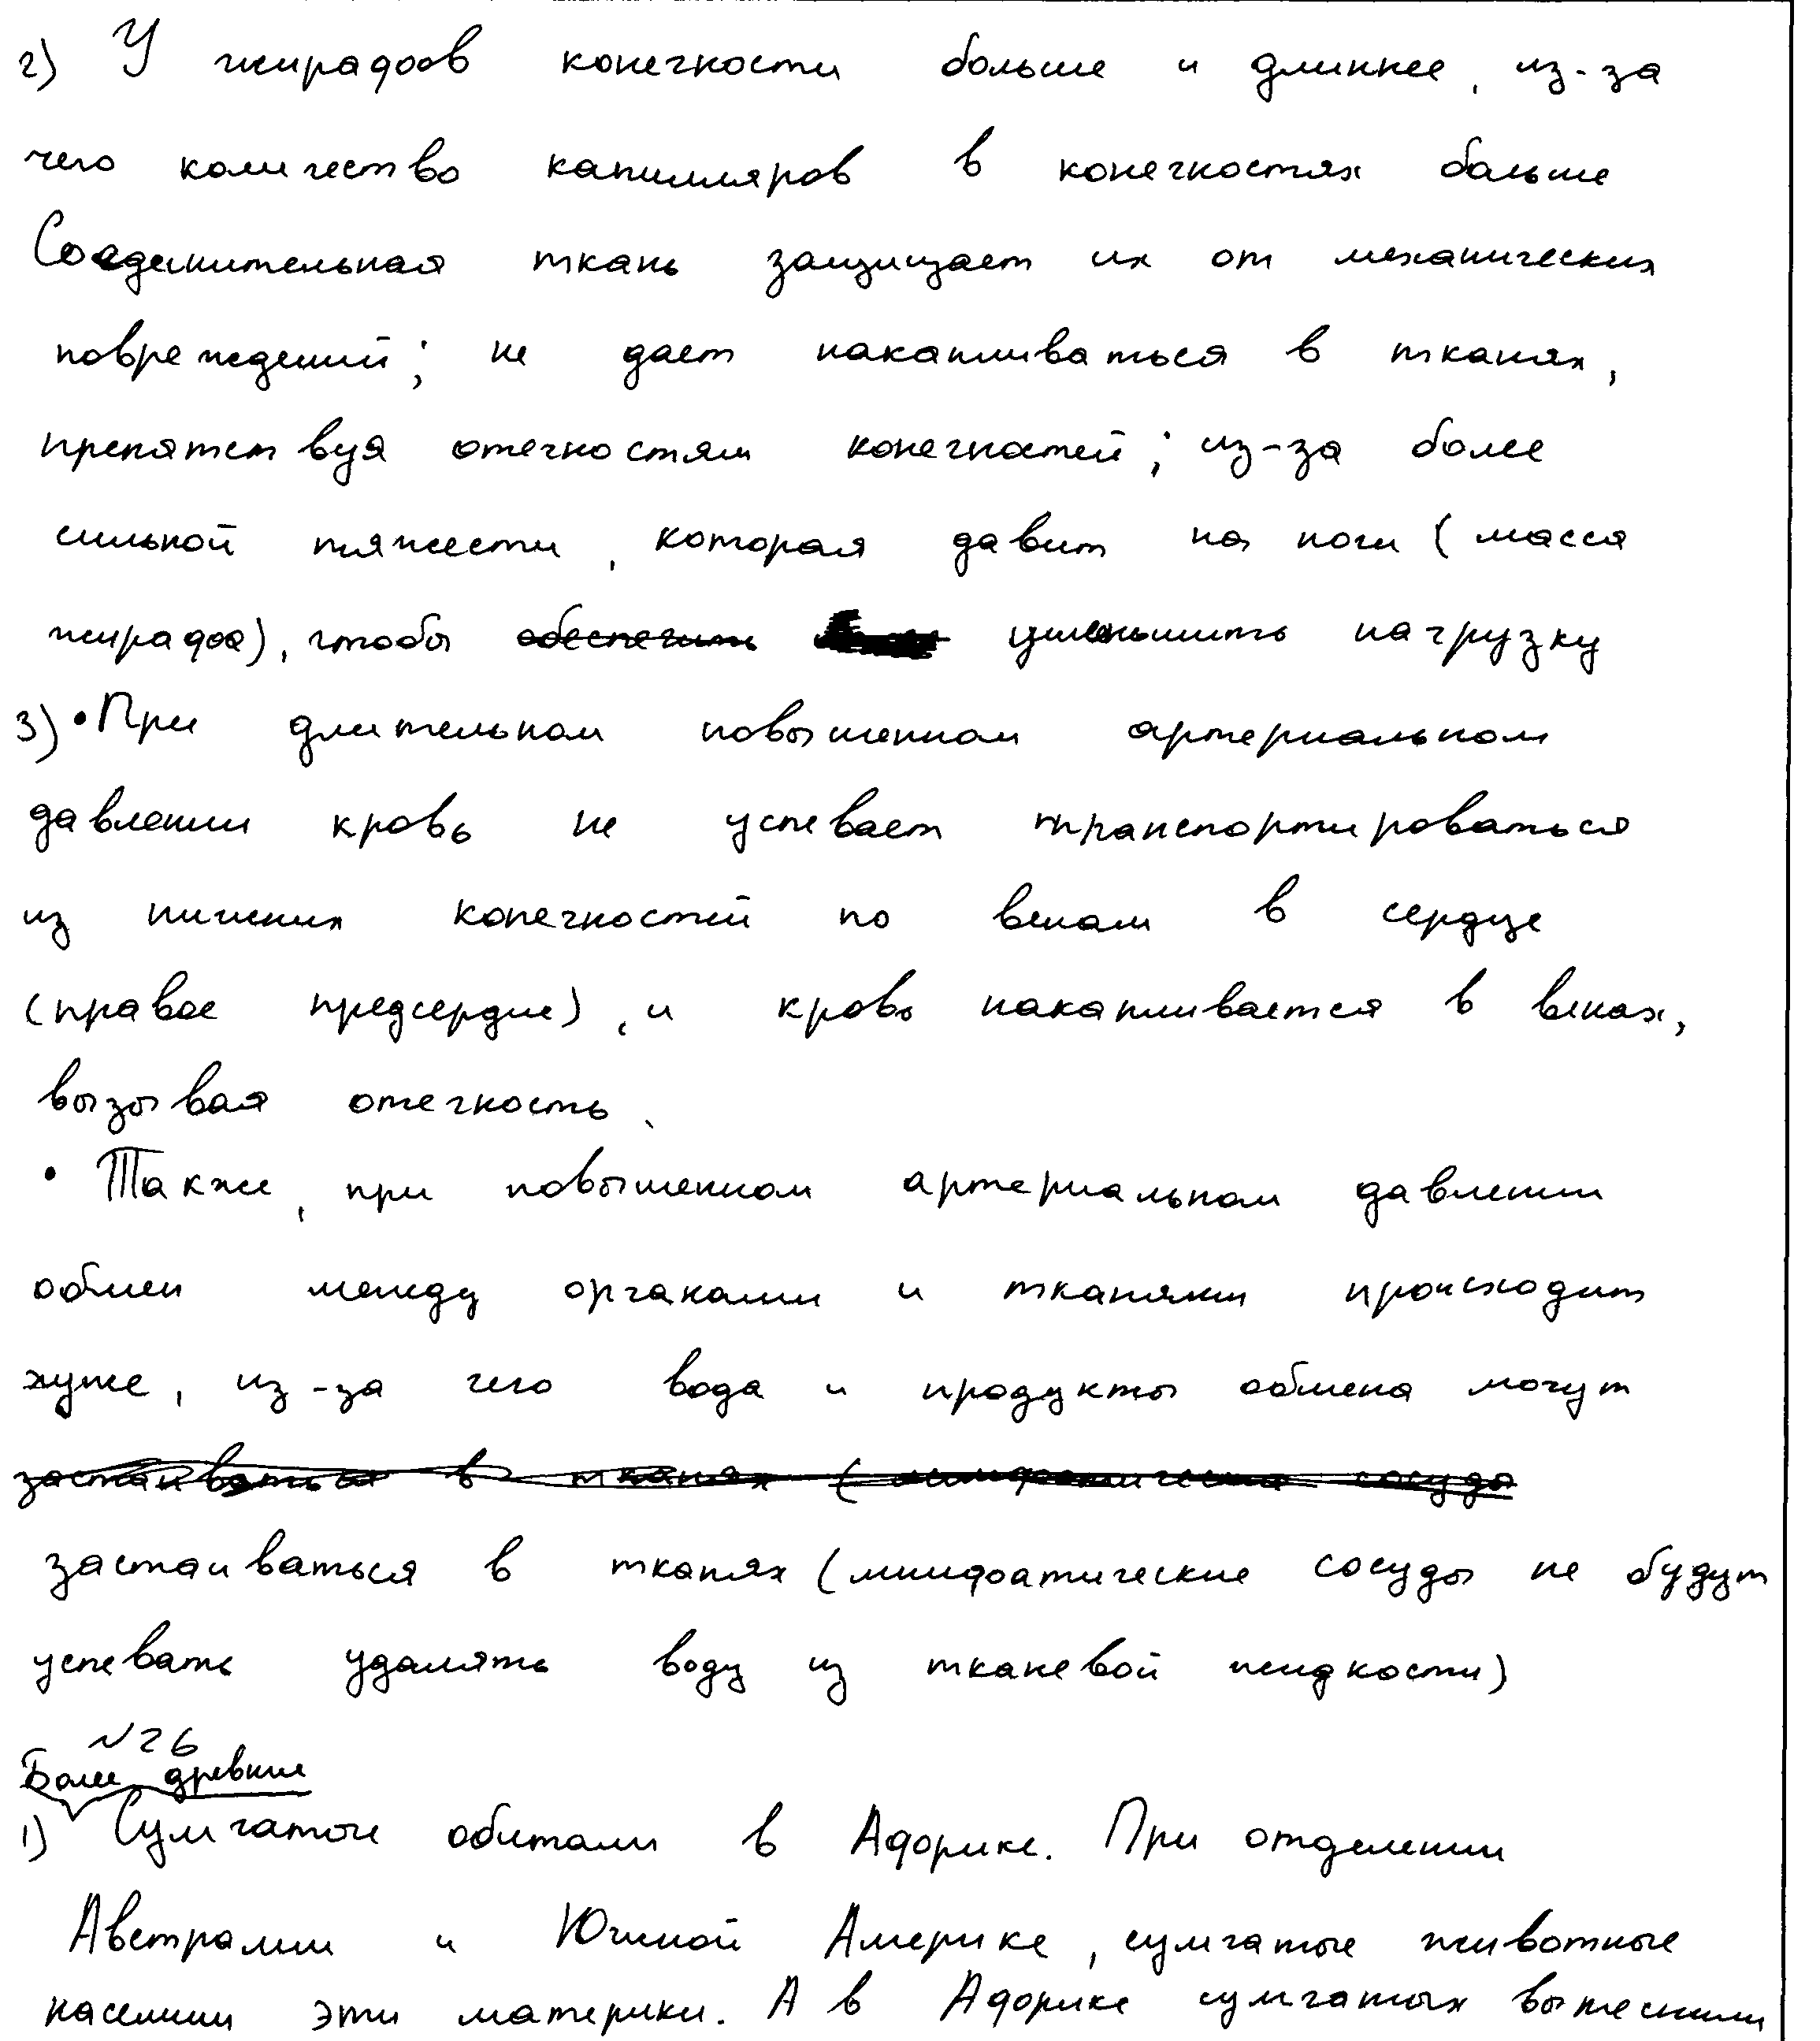 2) У жирафов конечности больше и длиннее, из-за
чего количество капилляров в конечностях больше
Соединительная ткань защищает их от механических
повреждений; не дает накапливаться в тканях,
препятствуя отечностям конечностей; из-за более
сильной тяжести, которая давит на ноги (масса
жирафов), чтобы обеспечить уменьшить нагрузку
3) • При длительном повышенном артериальном
давлении кровь не успевает транспортироваться
из нижних конечностей по венам в сердце
(правое предсердие), и кровь накапливается в венах,
вызывая отечность.
• Также, при повышенном артериальном давлении
обмен между органами и тканями происходит
хуже, из-за чего вода и продукты обмена могут
застаиваться в тканях (лимфатические сосуды
застаиваться в тканях (лимфоатические сосуды не будут
успевать удалять воду из тканевой жидкости)
№26
Более древние
1) Сумчатые обитали в Африке. При отделении
Австралии и Южной Америке, сумчатые животные
населили эти материки. А в Африке сумчатых вытеснили